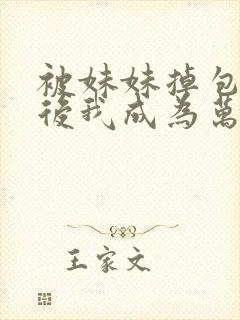 被妹妹掉包
後我成為萬
王家文